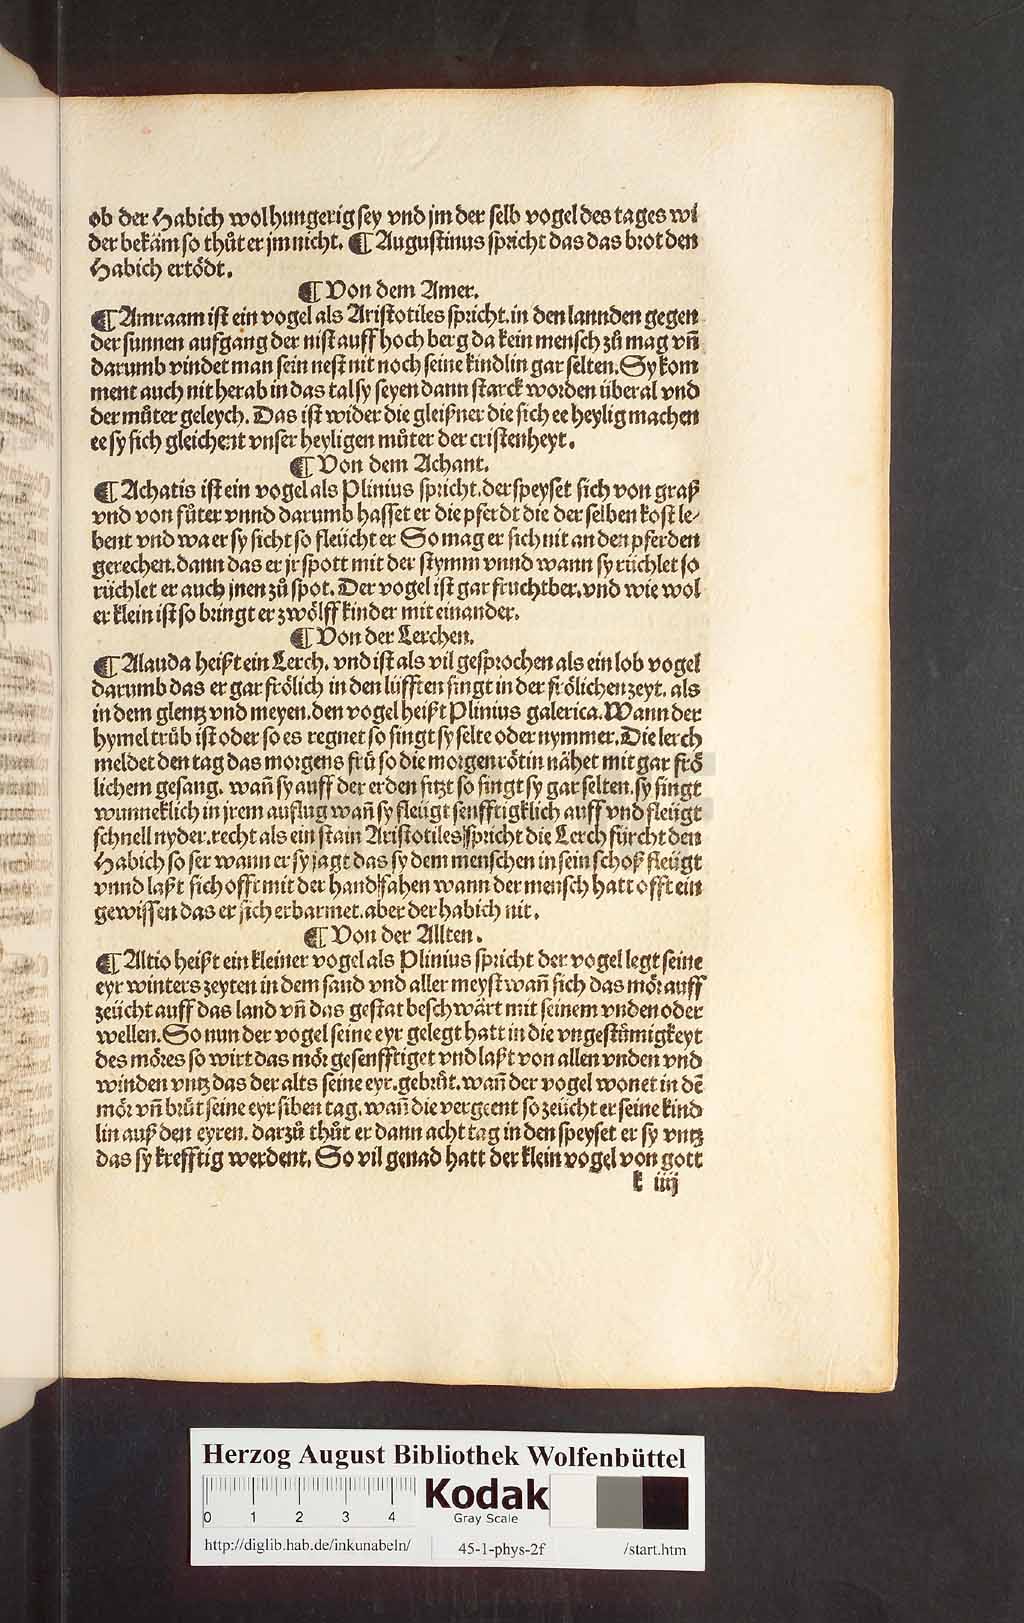 ob der Habich wol hungerig sey vnd jm der selb vogel des tages wi
der bekäm so thůt er jm nicht. ¶ Augustinus spricht das das brot den
Habich ertödt.
¶ Von dem Amer.
¶ Amraam ist ein vogel als Aristotiles spricht. in den lannden gegen
der sunnen aufgang der nist auff hoch berg da kein mensch zů mag vn̄
darumb vindet man sein nest nit noch seine kindlin gar selten. Sy kom
ment auch nit herab in das tal sy seyen dann starck worden überal vnd
der můter geleych. Das ist wider die gleißner die sich ee heylig machen
ee sy sich gleichent vnser heyligen můter der cristenheyt.
¶ Von dem Achant.
¶ Achatis ist ein vogel als Plinius spricht. der speyset sich von graß
vnd von fůter vnnd darumb hasset er die pferdt die der selben kost le⸗
bent vnd wa er sy sicht so fleücht er So mag er sich nit an den pferden
gerechen. dann das er jr spott mit der stymm vnnd wann sy rüchlet so
rüchlet er auch jnen zů spot. Der vogel ist gar fruchtber. vnd wie wol
er klein ist so bringt er zwölff kinder mit einander.
¶ Von der Lerchen.
¶ Alauda heißt ein Lerch. vnd ist als vil gesprochen als ein lob vogel
darumb das er gar frölich in den lüfften singt in der frölichen zeyt. als
in dem glentz vnd meyen. den vogel heißt Plinius galerica. Wann der
hymel trůb ist oder so es regnet so singt sy selte oder nymmer. Die lerch
meldet den tag das morgens frů so die morgenrötin nähet mit gar frö
lichem gesang. wan̄ sy auff der erden sitzt so singt sy gar selten. sy singt
wunneklich in jrem auflug wan̄ sy fleügt senfftigklich auff vnd fleügt
schnell nyder. recht als ein stain Aristotiles spricht die Lerch fürcht den
Habich so ser wann er sy jagt das sy dem menschen in sein schoß fleügt
vnnd laßt sich offt mit der hand fahen wann der mensch hatt offt ein
gewissen das er sich erbarmet. aber der habich nit.
¶ Von der Allten.
¶ Altio heißt ein kleiner vogel als Plinius spricht der vogel legt seine
eyr winters zeyten in dem sand vnd aller meyst wan̄ sich das mör auff
zeücht auff das land vn̄ das gestat beschwärt mit seinem vnden oder
wellen. So nun der vogel seine eyr gelegt hatt in die vngestůmigkeyt
des möres so wirt das mör gesenfftiget vnd laßt von allen vnden vnd
winden vntz das der alts seine eyr. gebrůt. wan̄ der vogel wonet in dē
mör vn̄ brůt seine eyr siben tag. wan̄ die vergeent so zeücht er seine kind
lin auß den eyren. darzů thůt er dann acht tag in den speyset er sy vntz
das sy krefftig werdent. So vil genad hatt der klein vogel von gott
k iiij
Herzog August Bibliothek Wolfenbüttel
0 1 2 3 4
Kodak
Gray Scale
http://diglib.hab.de/inkunabeln/ 45-1-phys-2f /start.htm